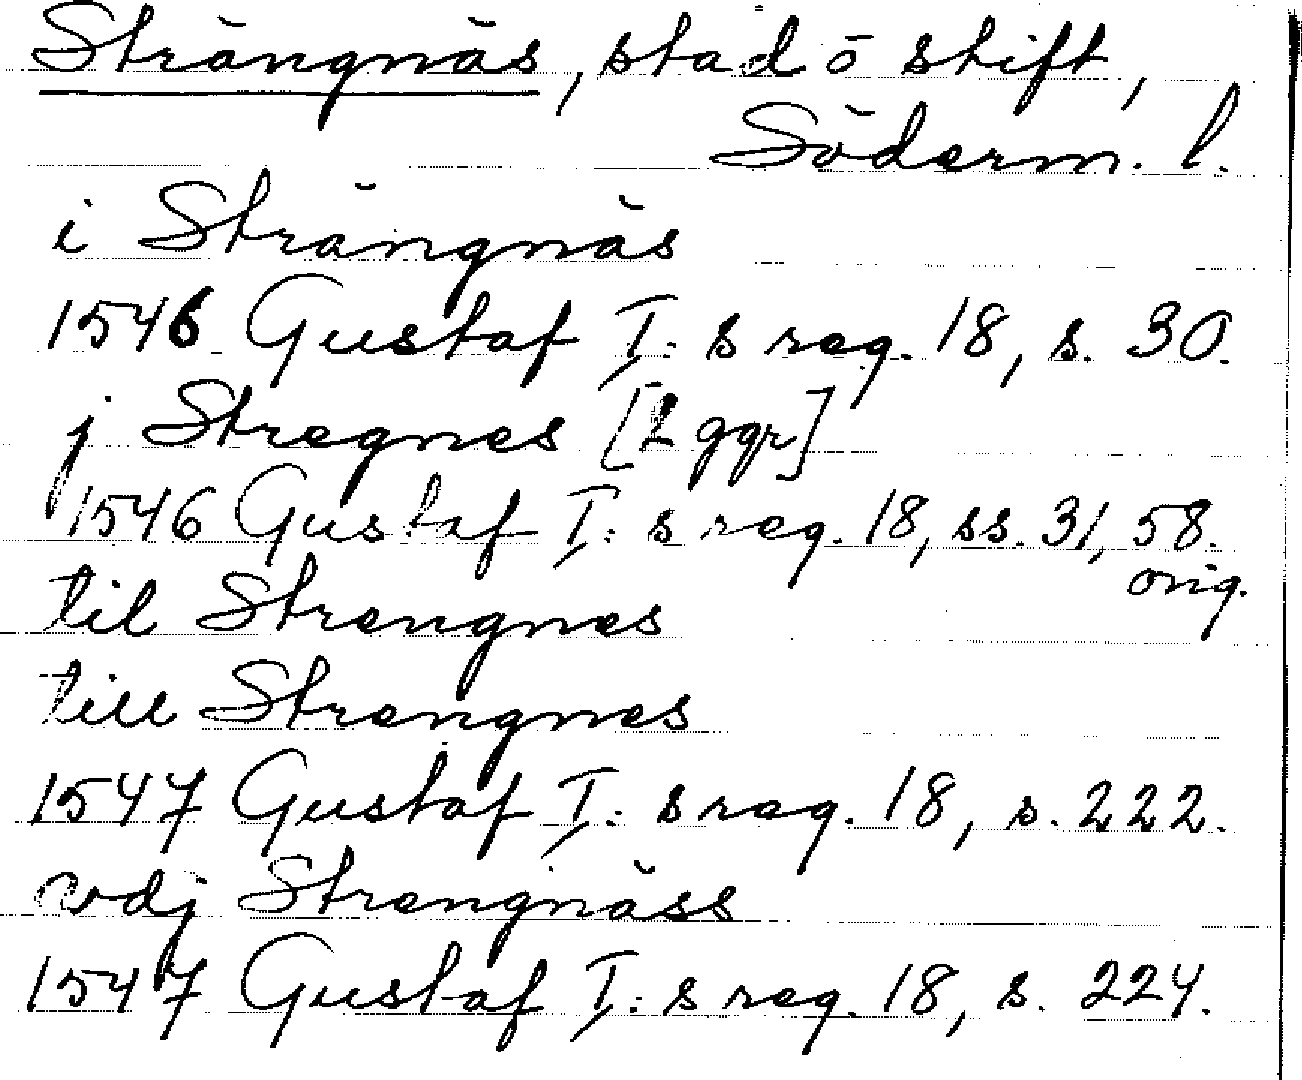 Strängnäs, stad o stift,
Söderm. l.
i Strängnäs
1546 Gustaf I:s reg. 18, s. 30.
j Stregnes [2 ggr]
1546 Gustaf I:s reg. 18, ss. 31, 58.
orig.
til Strengnes
till Strengnes
1547 Gustaf I:s reg. 18, s. 222.
vdj Strengnäss
1547 Gustaf I:s reg. 18, s. 224.